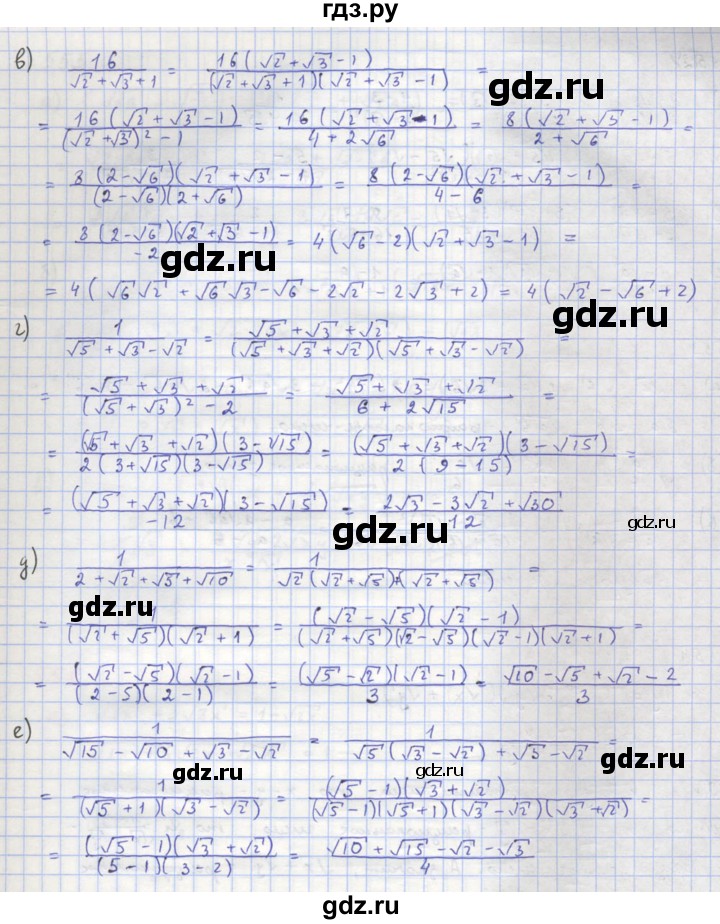 гдз.ру
в) 16/(√2 + √3 + 1) = 16(√2 + √3 - 1)/((√2 + √3 + 1)(√2 + √3 - 1)) =
= 16(√2 + √3 - 1)/((√2 + √3)² - 1) = 16(√2 + √3 - 1)/(4 + 2√6) = 8(√2 + √3 - 1)/(2 + √6) =
= 8(2 - √6)(√2 + √3 - 1)/((2 - √6)(2 + √6)) = 8(2 - √6)(√2 + √3 - 1)/(4 - 6) =
= 8(2 - √6)(√2 + √3 - 1)/(-2) = 4(√6 - 2)(√2 + √3 - 1) =
gdz.ru
= 4(√6√2 + √6√3 - √6 - 2√2 - 2√3 + 2) = 4(√2 - √6 + 2)
gdz.ru
г) 1/(√5 + √3 - √2) = (√5 + √3 + √2)/((√5 + √3 + √2)(√5 + √3 - √2)) =
= (√5 + √3 + √2)/((√5 + √3)² - 2) = (√5 + √3 + √2)/(6 + 2√15) =
= (√5 + √3 + √2)(3 - √15)/(2(3 + √15)(3 - √15)) = (√5 + √3 + √2)(3 - √15)/(2(9 - 15)) =
= (√5 + √3 + √2)(3 - √15)/(-12) = (2√3 - 3√2 + √30)/12
gdz.ru
gdz.ru
д) 1/(2 + √2 + √5 + √10) = 1/(√2(√2 + √5) + (√2 + √5)) =
gdz.ru
= 1/((√2 + √5)(√2 + 1)) = (√2 - √5)(√2 - 1)/((√2 + √5)(√2 - √5)(√2 - 1)(√2 + 1)) =
= (√2 - √5)(√2 - 1)/((2 - 5)(2 - 1)) = (√5 - √2)(√2 - 1)/3 = (√10 - √5 + √2 - 2)/3
е) 1/(√15 - √10 + √3 - √2) = 1/(√5(√3 - √2) + √3 - √2) =
gdz.ru
gdz.ru
= 1/((√5 + 1)(√3 - √2)) = (√5 - 1)(√3 + √2)/((√5 - 1)(√5 + 1)(√3 - √2)(√3 + √2)) =
= (√5 - 1)(√3 + √2)/((5 - 1)(3 - 2)) = (√10 + √15 - √2 - √3)/4
gdz.ru